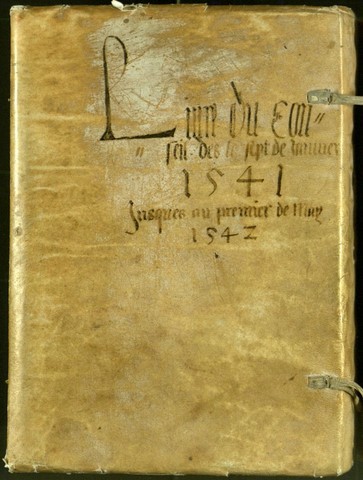 Livre du Con〃
〃 seil des le sept de Janvier
1541
Jusques au premier de May
1542